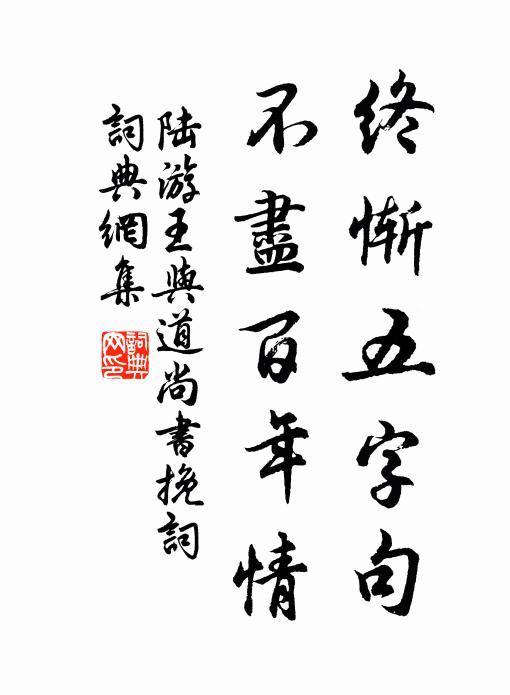 終慚五字句
不盡百年情
陸游王與道尚書挽詞
詞典網集
詞典網印